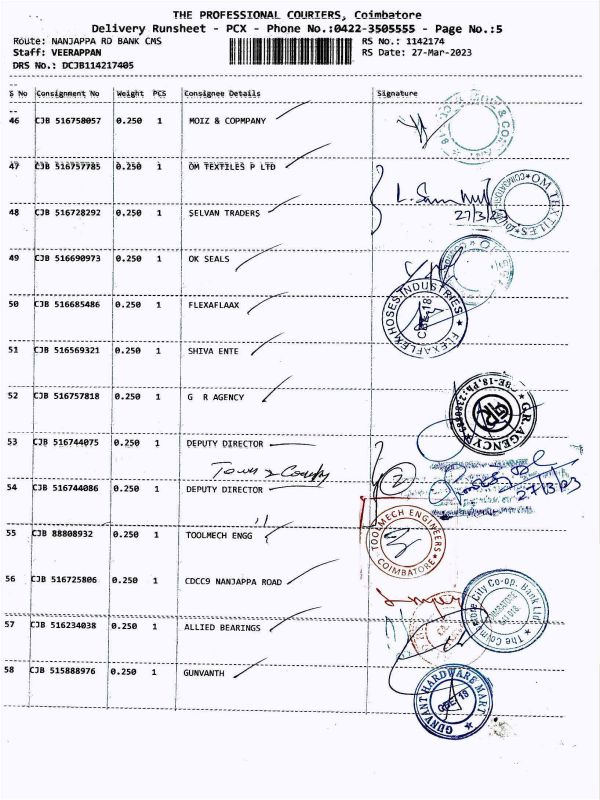 THE PROFESSIONAL COURIERS, Coimbatore
Delivery Runsheet - PCX - Phone No.:0422-3505555 - Page No.:5
Route: NANJAPPA RD BANK CMS RS No.: 1142174
Staff: VEERAPPAN RS Date: 27-Mar-2023
DRS No.: DCJB114217405
S No Consignment No Weight PCS Consignee Details Signature
46 CJB 516758057 0.250 1 MOIZ & COPMPANY
47 CJB 516757785 0.250 1 OM TEXTILES P LTD
OM TEXTILES
27/3/23
48 CJB 516728292 0.250 1 SELVAN TRADERS
49 CJB 516690973 0.250 1 OK SEALS
50 CJB 516685486 0.250 1 FLEXAFLAAX
FLEXAFLEX HOSES INDUSTRIES
CBE-18
51 CJB 516569321 0.250 1 SHIVA ENTE
52 CJB 516757818 0.250 1 G R AGENCY
G.R. AGENCY
GR
53 CJB 516744075 0.250 1 DEPUTY DIRECTOR
Town & Country
2
54 CJB 516744086 0.250 1 DEPUTY DIRECTOR
27/3/23
"
55 CJB 88808932 0.250 1 TOOLMECH ENGG
TOOLMECH ENGINEERS
COIMBATORE
56 CJB 516725806 0.250 1 CDCC9 NANJAPPA ROAD
The Coimbatore City Co-op. Bank Ltd
57 CJB 516234038 0.250 1 ALLIED BEARINGS
58 CJB 515888976 0.250 1 GUNVANTH
GUNVANT HARDWARE MART
CBE-18